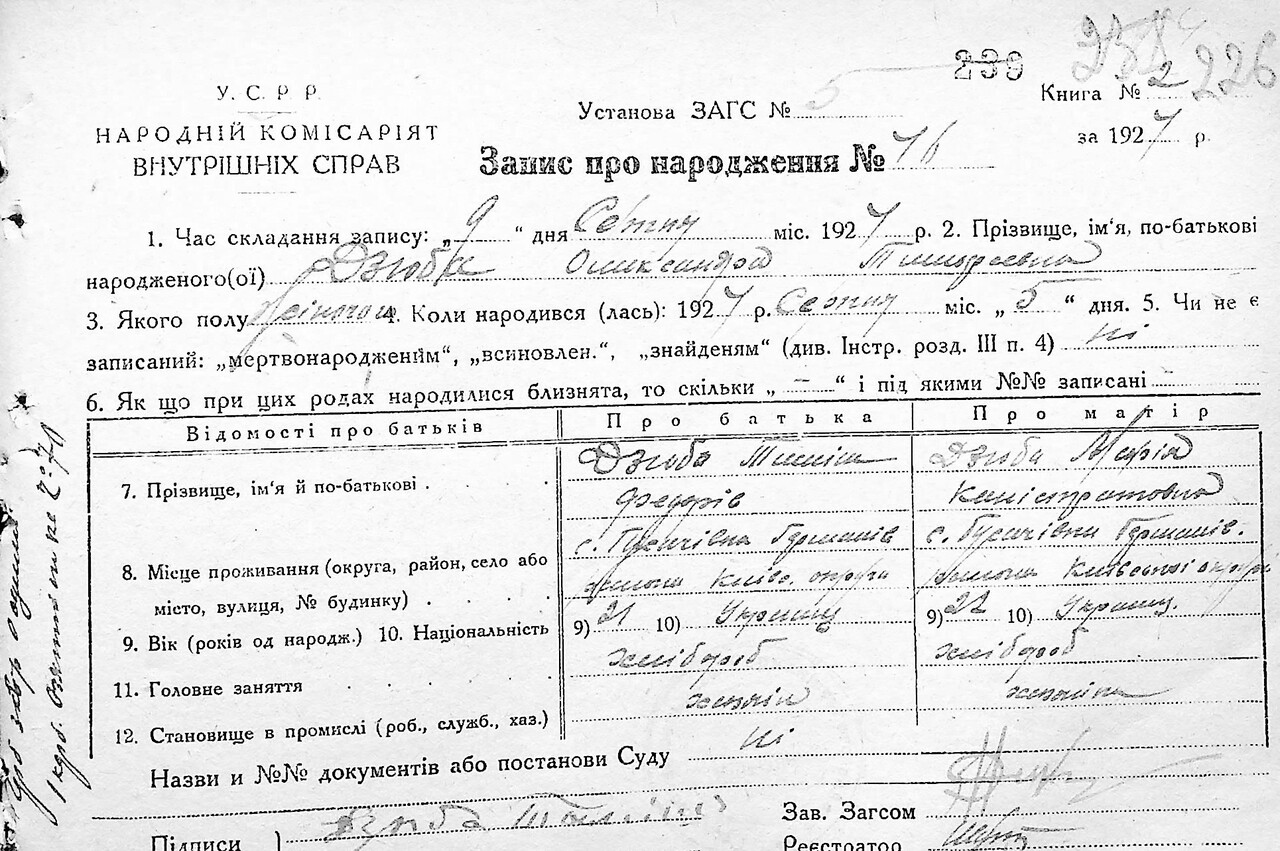 239 226
У. С. Р. Р.
НАРОДНІЙ КОМІСАРІЯТ
ВНУТРІШНІХ СПРАВ
Установа ЗАГС № 5
Книга № 2
за 1927 р.
Запис про народження № 76
1. Час складання запису: „9“ дня Січня міс. 1927 р. 2. Прізвище, ім‘я, по-батькові
народженого(ої) Дзюба Олександра
3. Якого полу 4. Коли народився (лась): 1927 р. Січня міс. „5“ дня. 5. Чи не є
записаний: „мертвонародженим“, „всиновлен.“, „знайденям“ (див. Інстр. розд. III п. 4) ні
6. Як що при цих родах народилися близнята, то скільки „ — “ і під якими №№ записані
Відомості про батьків Про батька Про матір
7. Прізвище, ім‘я й по-батькові Дзюба Дзюба Марія
Федорів Каністратовна
8. Місце проживання (округа, район, село або с. Гусачівка Германів с. Гусачівка Германів.
місто, вулиця, № будинку) района Київс. округи района Київської округи
9. Вік (років од народж.) 10. Національність 9) 21 10) Украинц 9) 22 10) Украинц.
11. Головне заняття хлібороб хлібороб
12. Становище в промислі (роб., служб., хаз.) хазяін хазяіка
Назви и №№ документів або постанови Суду ні
Підписи } Дзюба
Зав. Загсом
Реєстратор